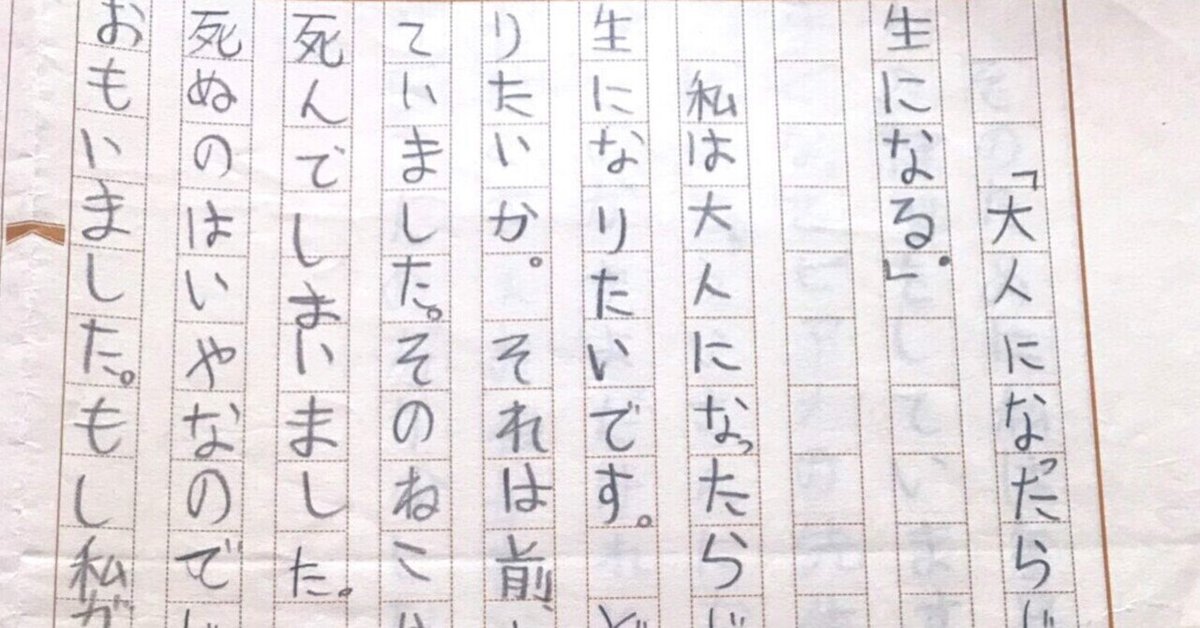 「大人になったらじ
生になる。」
私は大人になったらじ
生になりたいです。ど
りたいか。それは前、
ていました。そのねこ
死んでしまいました。
死ぬのはいやなのでじ
おもいました。もし私が